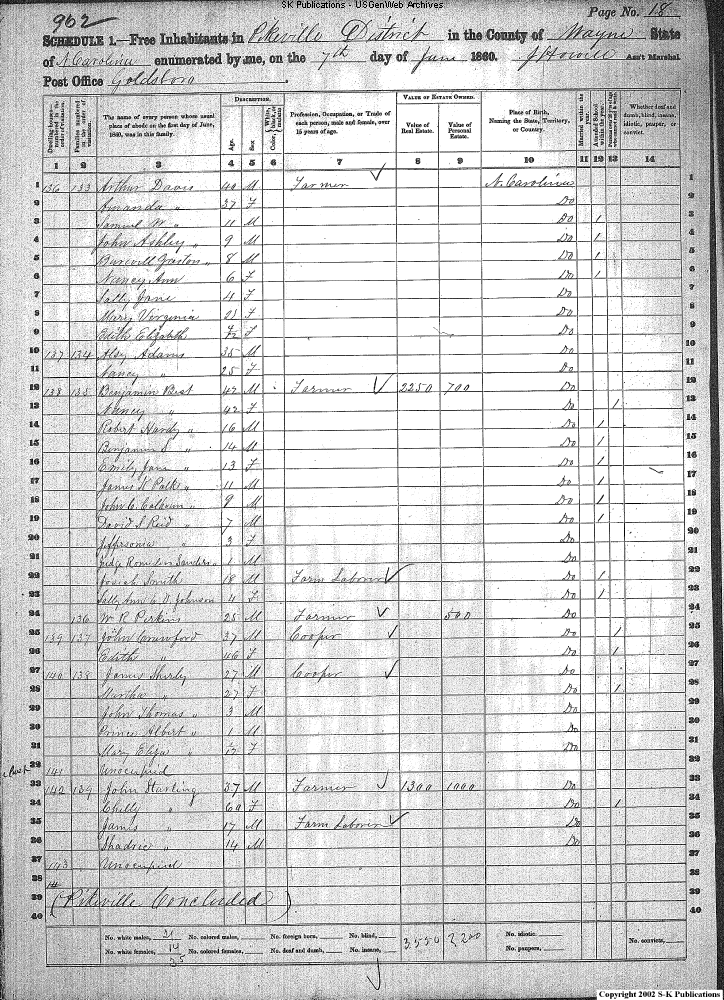 SK Publications - USGenWeb Archives
902 Page No. 18
SCHEDULE 1.—Free Inhabitants in Pikeville District in the County of Wayne State
of N. Carolina enumerated by me, on the 7th day of June 1860. J Howell Ass't Marshal
Post Office Goldsboro
DESCRIPTION. VALUE OF ESTATE OWNED.
The name of every person whose usual place of abode on the first day of June, 1860, was in this family. Age. Sex Profession, Occupation, or Trade of each person, male and female, over 15 years of age. Value of Real Estate. Value of Personal Estate. Place of Birth, Naming the State, Territory, or Country. Married within the year. Attended School within the year. Whether deaf and dumb, blind, insane, idiotic, pauper, or convict.
1 2 3 4 5 6 7 8 9 10 11 12 13 14
1 136 133 Arthur Davis 40 M Farmer N. Carolina 1
2 Amanda " 37 F Do 2
3 Samuel W " 11 M Do 1 3
4 John Ashley " 9 M Do 1 4
5 Gaston " 8 M Do 1 5
6 Nancy Ann 6 F Do 1 6
7 Sally Jane 4 F Do 7
8 Mary Virginia 2 F Do 8
9 Edith Elizabeth F Do 9
10 137 134 Alsy Adams 35 M Do 10
11 Nancy " 25 F Do 11
12 138 135 Benjamin Best 42 M Farmer 2250 700 Do 12
13 Nancy " 42 F Do 1 13
14 Robert Hardy " 16 M Do 1 14
15 Benjamin S " 14 M Do 1 15
16 Emily Jane " 13 F Do 1 16
17 James K Polk " 11 M Do 1 17
18 John C. Calhoun " 9 M Do 1 18
19 David S Reid " 7 M Do 1 19
20 Jeffersonia " 3 F Do 20
21 Sanders " 1 M Do 21
22 Josiah Smith 18 M Farm Laborer Do 1 22
23 Sally Ann C. V. Johnson 4 F Do 1 23
24 136 Wm R Perkins 25 M Farmer 500 Do 24
25 139 137 John Crawford 37 M Cooper Do 1 25
26 Edith " 46 F Do 1 26
27 140 138 James Shirly 27 M Cooper Do 27
28 Martha " 27 F Do 1 28
29 John Thomas " 3 M Do 29
30 Albert " 1 M Do 30
31 Mary Eliza " F Do 31
32 141 Unoccupied 32
33 142 139 John Starling 37 M Farmer 1300 1000 Do 33
34 Chilly " 60 F Do 1 34
35 James " 17 M Farm Laborer Do 35
36 Shadric " 14 M Do 36
37 143 Unoccupied 37
38 38
39 (Pikeville Concluded) 39
40 40
No. white males, 21 No. colored males, No. foreign born, No. blind, 3550 2200 No. idiotic, No. convicts,
No. white females, 14 No. colored females, No. deaf and dumb, No. insane, No. paupers,
35
Copyright 2002 S-K Publications